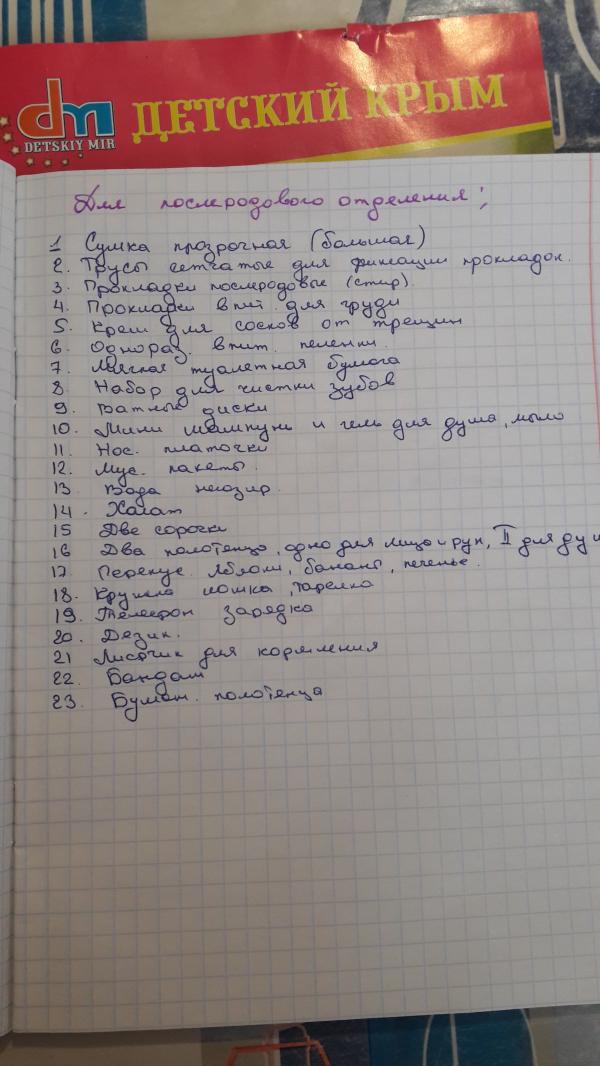 dm
DETSKIY MIR
ДЕТСКИЙ КРЫМ
Для послеродового отделения:
1 Сумка прозрачная (большая)
2. Трусы сетчатые для фиксации прокладок.
3. Прокладки послеродовые (стер).
4. Прокладки впит. для груди
5. Крем для сосков от трещин
6. Однораз. впит. пеленки.
7. Мягкая туалетная бумага
8. Набор для чистки зубов
9. Ватные диски
10. Мини шампунь и гель для душа, мыло
11. Нос. платочки
12. Мус. пакеты.
13. Вода негазир.
14. Халат
15 Две сорочки
16 Два полотенца, одно для лица и рук, II для ду
17. Перекус. Яблоки, бананы, печенье.
18. Кружка ложка, тарелка
19. Телефон зарядка
20. Дезик.
21 Лифчик для кормления
22. Бандаж
23. Бумаж. полотенца